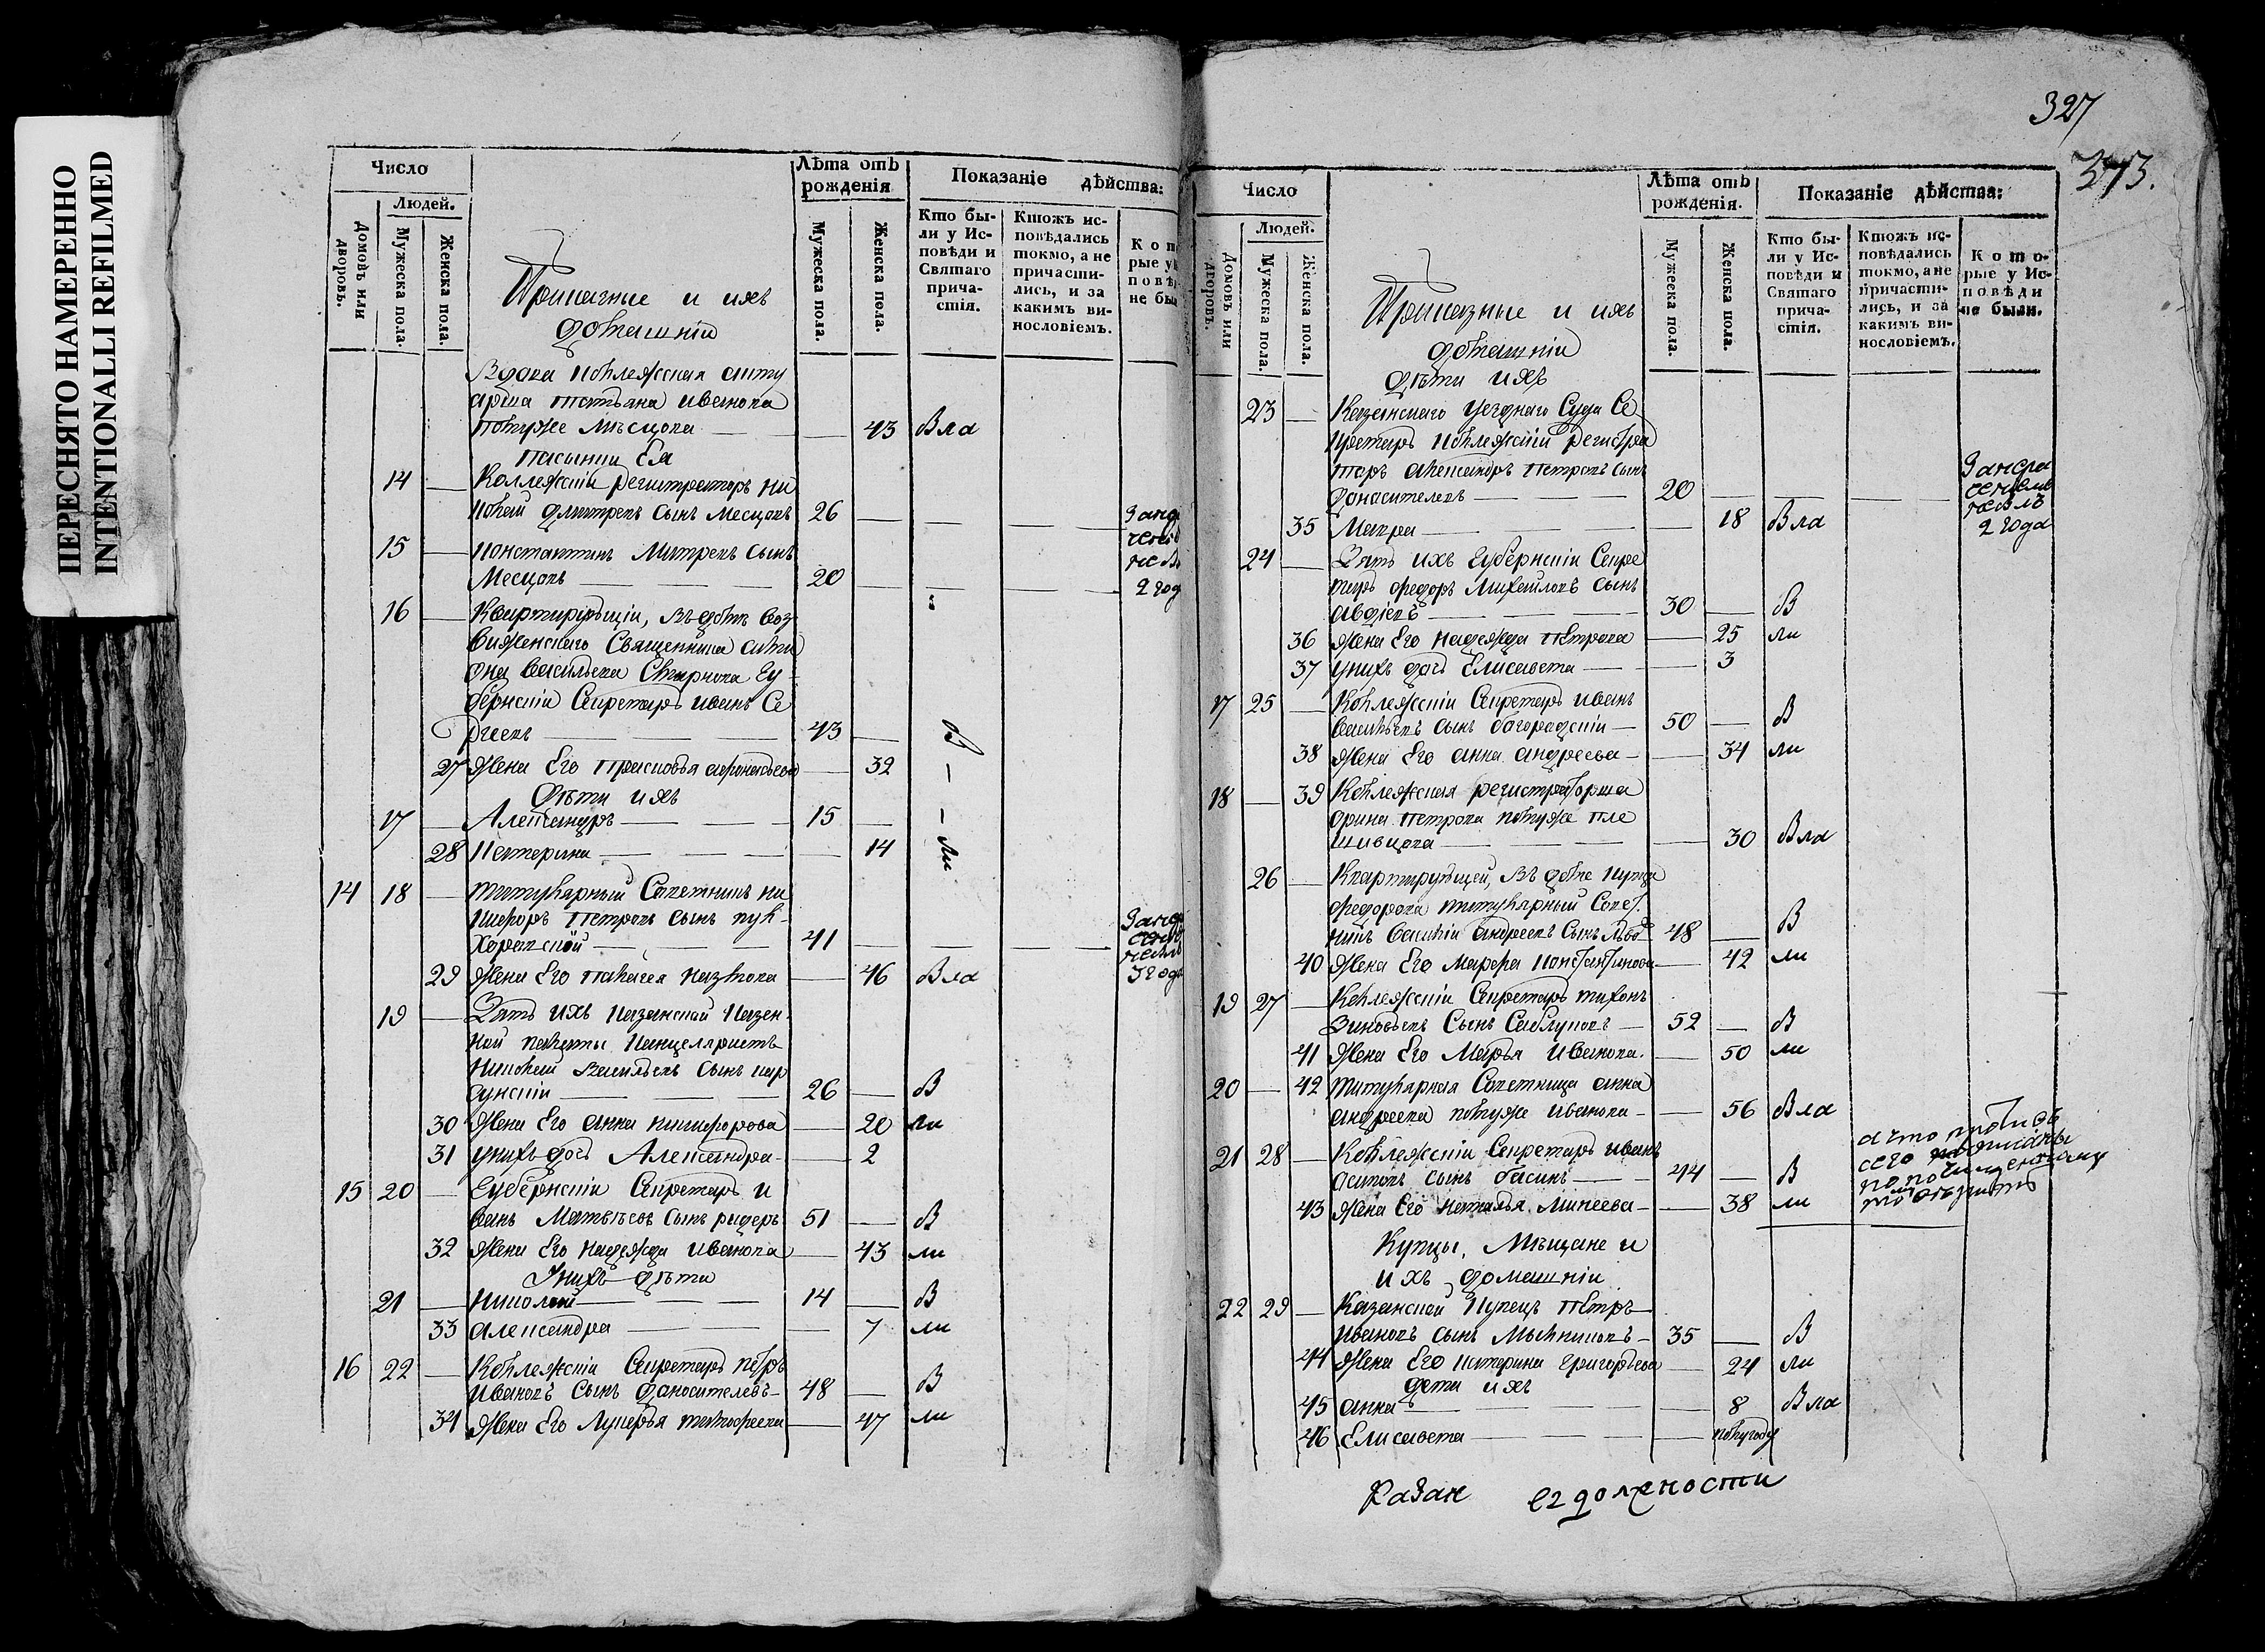 ПЕРЕСНЯТО НАМЕРЕННО
INTENTIONALLI REFILMED
Число
Людей.
Домовъ или дворовъ.
Мужеска пола.
Женска пола.
Лѣта отъ рожденія
Мужеска пола.
Женска пола.
Показаніе дѣйства:
Кто бы-
ли у Ис-
повѣди и
Святаго
прича-
стія.
Ктожъ ис-
повѣдались
токмо, а не
причасти-
лись, и за
какимъ ви-
нословіемъ.
Приказные и ихъ
домашніи
Вдова колležская
Татьяна Иванова
43 Вла
Пасынки Ея
14 — Коллежскій регистраторъ Ни
колай Дмитревъ сынъ Месцовъ 26
15 — Константинъ Митревъ сынъ
Месцовъ 20
16 — Квартирующіи, въ домѣ Воз
движенскаго Священника
Васильева Гу
бернскіи Секретарь Иванъ Се
ргеевъ 43 В
27 Жена Его Прасковья 32
Дѣти ихъ
17 — Александръ 15
28 Катерина 14 ли
14 18 — Титулярный Советникъ Ни
кифоръ Петровъ сынъ Пуль
41
29 Жена Его Палагея 46 Вла
3 года
19 — Зять ихъ Казанской Казен
ной палаты Канцеляристъ
Николай Васильевъ сынъ
26 — В
30 Жена Его Анна Никифорова 20 ли
31 у нихъ дочь Александра 2
15 20 — Губернскіи Секретарь И
ванъ Матвѣевъ сынъ 51 — В
32 Жена Его Надежда Иванова 43 ли
У нихъ дѣти
21 — Николай 14 — В
33 Александра 7 ли
16 22 — Коллежскіи Секретарь Петръ
Ивановъ сынъ Доносителевъ 48 — В
34 Жена Его Лукерья Тимофеева 47 ли
327
373.
Число
Людей.
Домовъ или дворовъ.
Мужеска пола.
Женска пола.
Лѣта отъ
рожденія.
Мужеска пола.
Женска пола.
Показаніе дѣйства:
Кто бы-
ли у Ис-
повѣди и
Святаго
прича-
стія.
Ктожъ ис-
повѣдались
токмо, а не
причасти-
лись, и за
какимъ ви-
нословіемъ.
Кото-
рые у Ис-
повѣди
не были.
Приказные и ихъ
домашніи
Дѣти ихъ
23 — Казанскаго Уезднаго Суда Се
кретарь Коллежскіи Регистра
торъ Александръ Петровъ сынъ
Доносителевъ 20
2 года
35 Мавра 18 Вла
24 — Зять ихъ Губернскіи Секре
тарь Федоръ Михайловъ сынъ
Авдіевъ 30 — В
36 Жена Его Надежда Петрова 25 ли
37 у нихъ дочь Елисавета 3
17 25 — Коллежскіи Секретарь Иванъ
Васильевъ сынъ Багорадскіи 50 — В
38 Жена Его Анна Андреева 34 ли
18 — 39 Коллежская регистраторша
Арина Петрова по муже Пле
шивцова 30 Вла
26 — Квартирующей, въ доме купца
Федорова Титулярный Совет
никъ Василіи Андреевъ сынъ 48 — В
40 Жена Его Марфа Константинова 42 ли
19 27 — Коллежскіи Секретарь Тихонъ
Зиновьевъ сынъ Саблуковъ 52 — В
41 Жена Его Марья Иванова 50 ли
20 — 42 Титулярная Советница Анна
Андреева по муже Иванова 56 Вла
21 28 — Коллежскіи Секретарь Иванъ
Осиповъ сынъ Басинъ 44 — В
43 Жена Его Наталья Минеева 38 ли
а что противъ
сего
Купцы, Мѣщане и
ихъ домашніи
22 29 — Казанской Купецъ Петръ
Ивановъ сынъ Мыльниковъ 35 — В
44 Жена Его Катерина Григорьева 24 ли
Дети ихъ
45 Анна 8 Вла
46 Елисавета полугоду